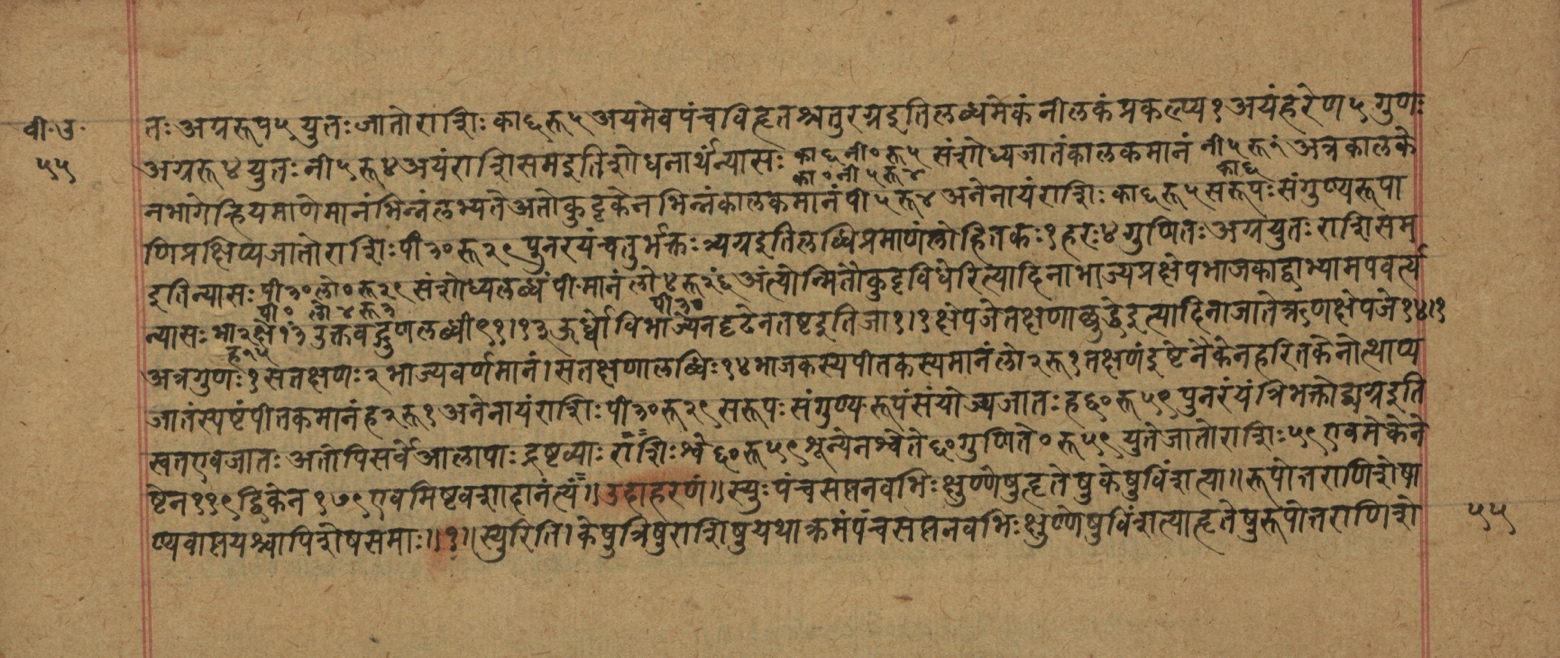 वी॰उ॰
५५
तः अग्ररूप५ युतः जातो राशिः का ६ रू ५ अयमेव पंचविहृतश्चतुरग्र इति लब्धमेकं नीलकं प्रकल्प्य १ अयं हरेण ५ गुणः
अग्ररू ४ युतः नी ५ रू ४ अयं राशिसम इति शोधनार्थं न्यासः का ६ नी ० रू ५ का ० नी ५ रू ४ संशोध्य जातं कालकमानं नी ५ रू १ं का ६ अत्र कालके
न भागे ह्रियमाणे मानं भिन्नं लभ्यते अतो कुट्टकेन भिन्नं कालकमानं पी ५ रू ४ अनेनायं राशिः का ६ रू ५ सरूपः संगुण्य रूपा
णि प्रक्षिप्य जातो राशिः पी ३० रू २९ पुनरयं चतुर्भक्तः त्र्यग्र इति लब्धिप्रमाणं लोहितकः १ हरः ४ गुणितः अग्रयुतः राशिसम
इति न्यासः पी ३० लो ० रू २९ पी ० लो ४ रू ३ संशोध्य लब्धं पी॰मानं लो ४ रू २ं६ पी ३० अंत्योन्मितौ कुट्टविधेरित्यादिना भाज्यप्रक्षेपभाजका द्वाभ्यामपवर्त्य
न्यासः भा २ क्षे १ं३ ह १५ उक्तवद्गुणलब्धी ९१।१३ ऊर्ध्वो विभाज्येन दृढेन तष्ट इति जा १।१ क्षेपजे तक्षणाच्छुद्धे इत्यादिना जाते ऋणक्षेपजे १४।१
अत्र गुणः १ सतक्षणः २ भाज्यवर्णमानं। सतक्षणा लब्धिः १४ भाजकस्य पीतकस्य मानं लो २ रू १ तक्षणं इष्टेनैकेन हरितकेनोत्थाप्य
जातं स्पष्टं पीतकमानं ह २ रू १ अनेनायं राशिः पी ३० रू २९ सरूपः संगुण्य रूपं संयोज्य जातः ह ६० रू ५९ पुनरंयं त्रिभक्तो द्व्यग्र इति
स्वत एव जातः अतोपि सर्वे आलापाः द्रष्टव्याः राशिः श्वे ६० रू ५९ शून्येन श्वेते ६० गुणिते ० रू ५९ युते जातो राशिः ५९ एवमेकेने
ष्टेन ११९ द्विकेन १७९ एवमिष्टवशादानंत्यं॥ उदाहरणं॥ स्युः पंचसप्तनवभिः क्षुण्णेषु हृतेषु केषु विंशत्या॥ रूपोत्तराणि शेषा
ण्यवाप्तयश्चापि शेषसमाः॥१॥ स्युरिति। केषु त्रिषु राशिषु यथाक्रमं पंचसप्तनवभिः क्षुण्णेषु विंशत्या हृतेषु रूपोत्तराणि शे
५५